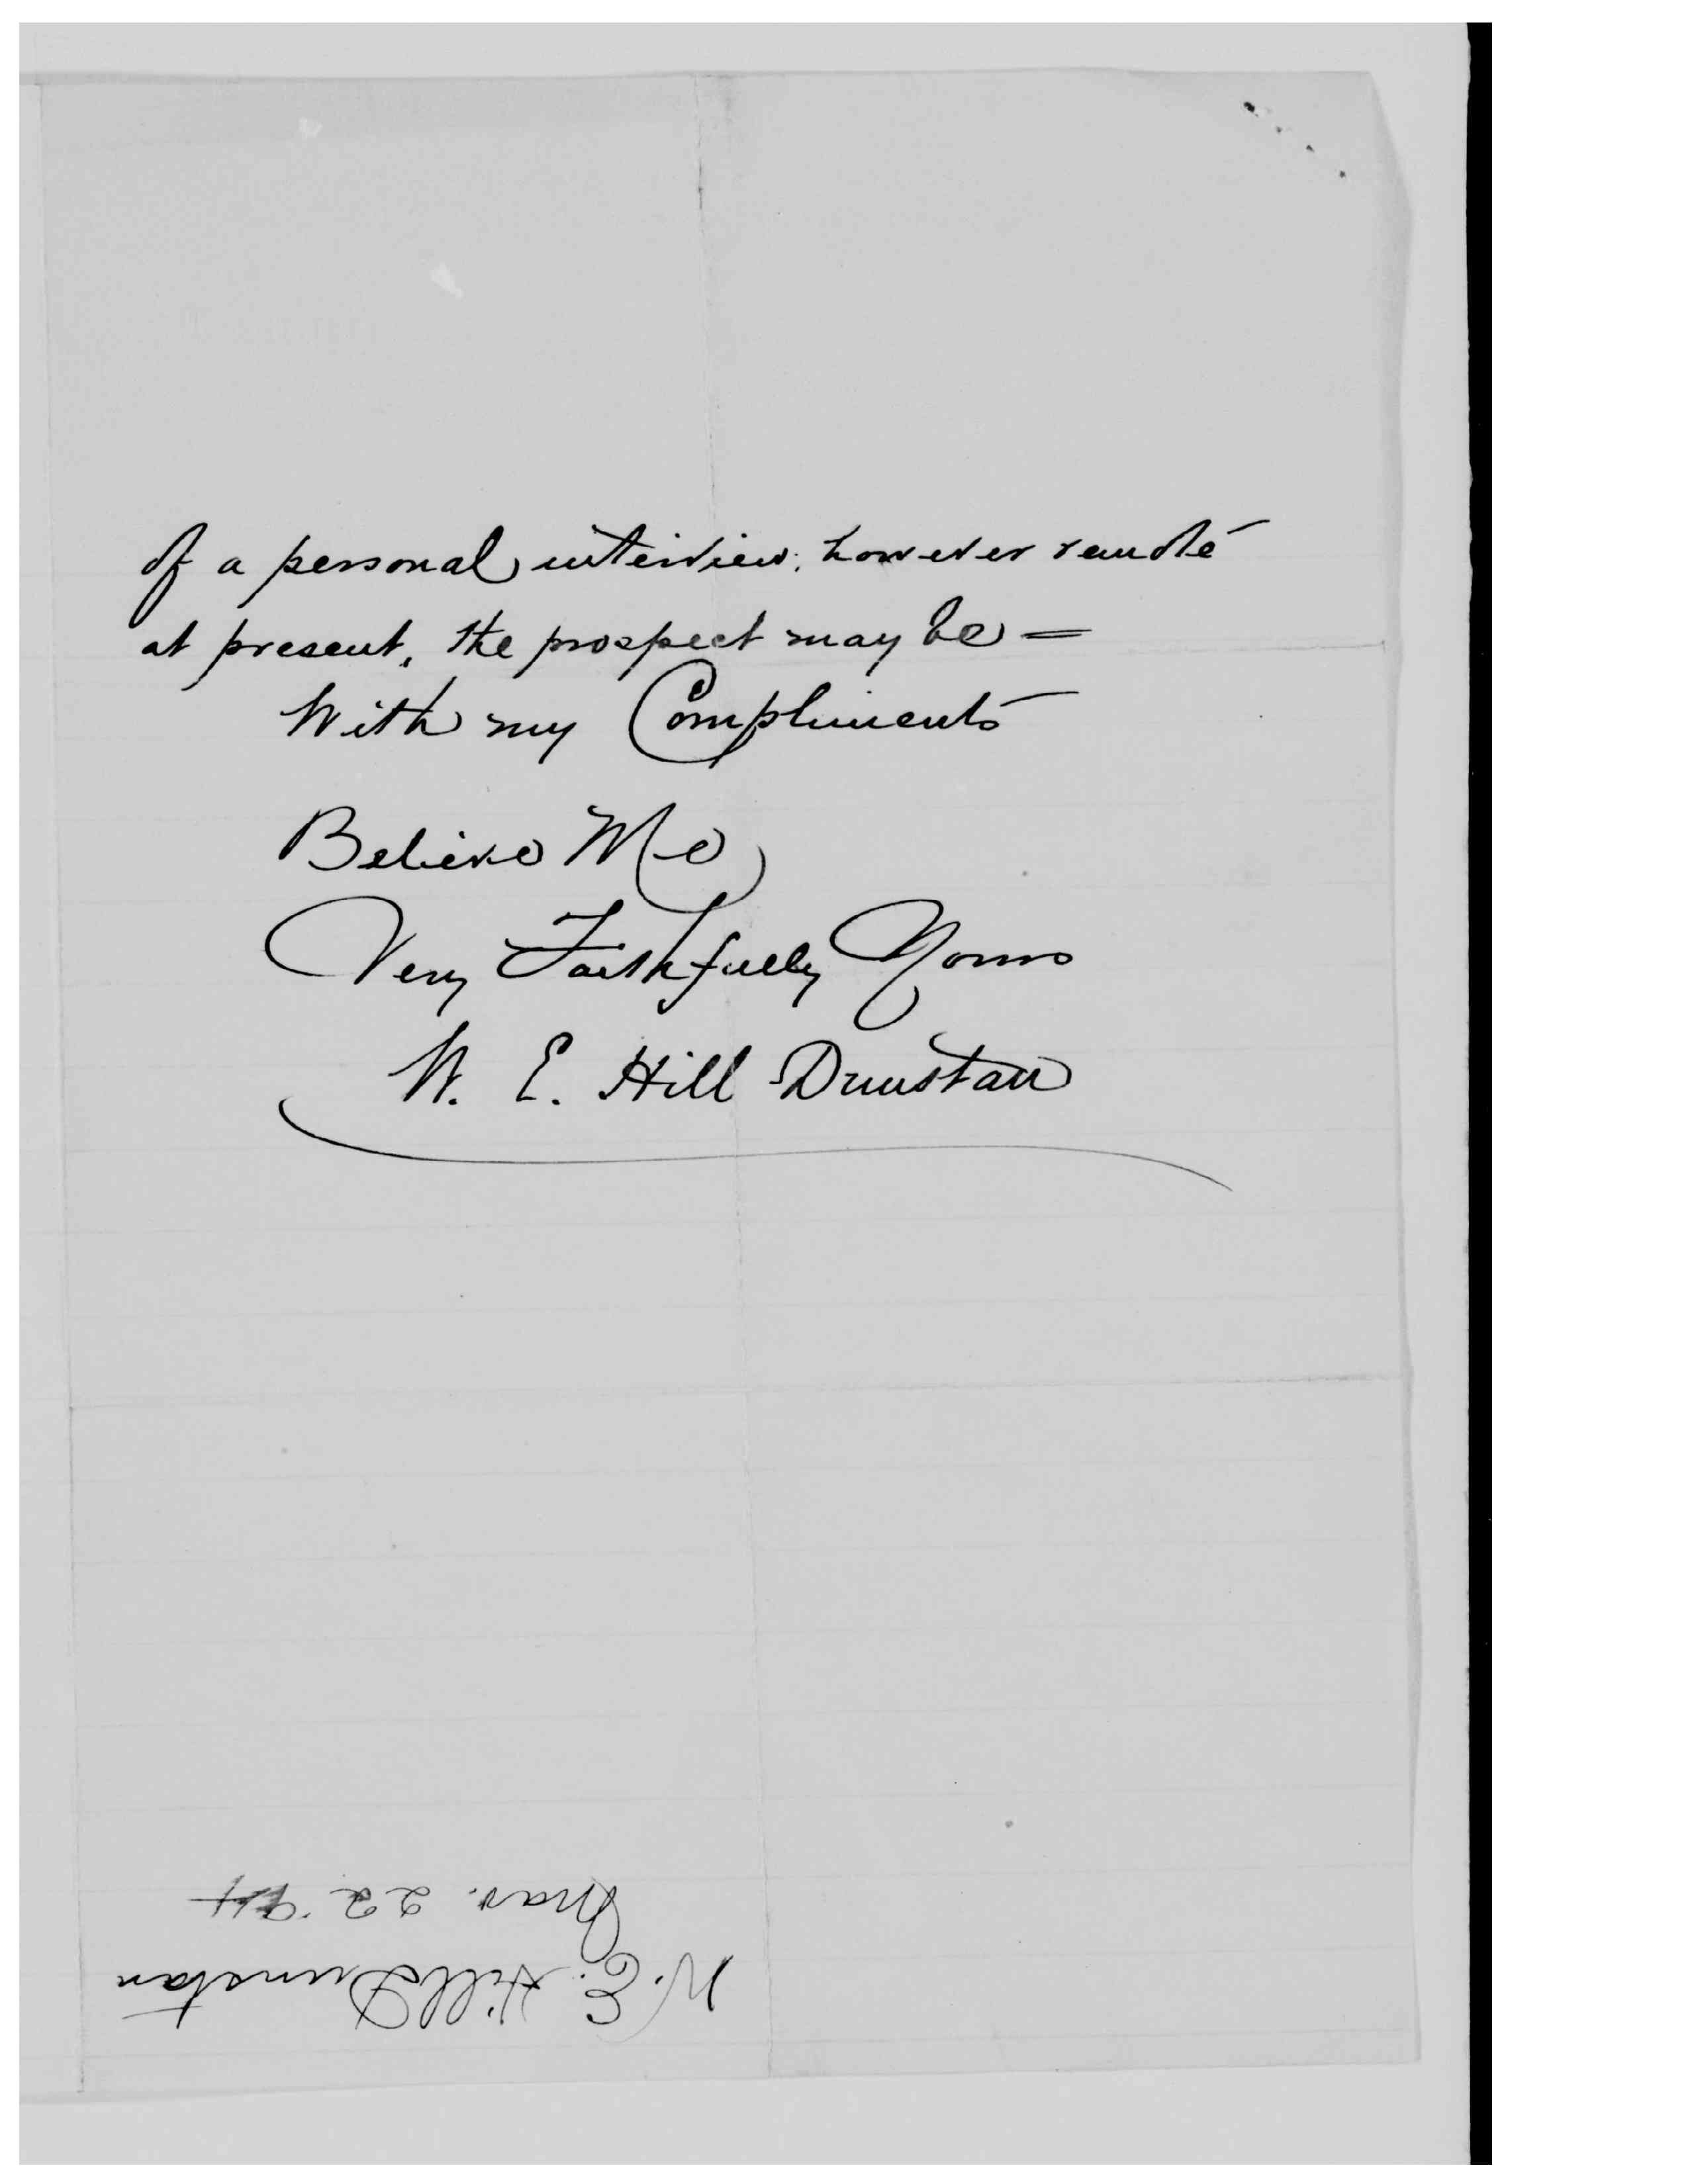 of a personal interview, however remote
at present, the prospect may be =
With my Compliments
Believe Me
Very Faithfully Yours
W. E. Hill Dunstan
W. E. Hill Dunstan
Mar. 22. 94